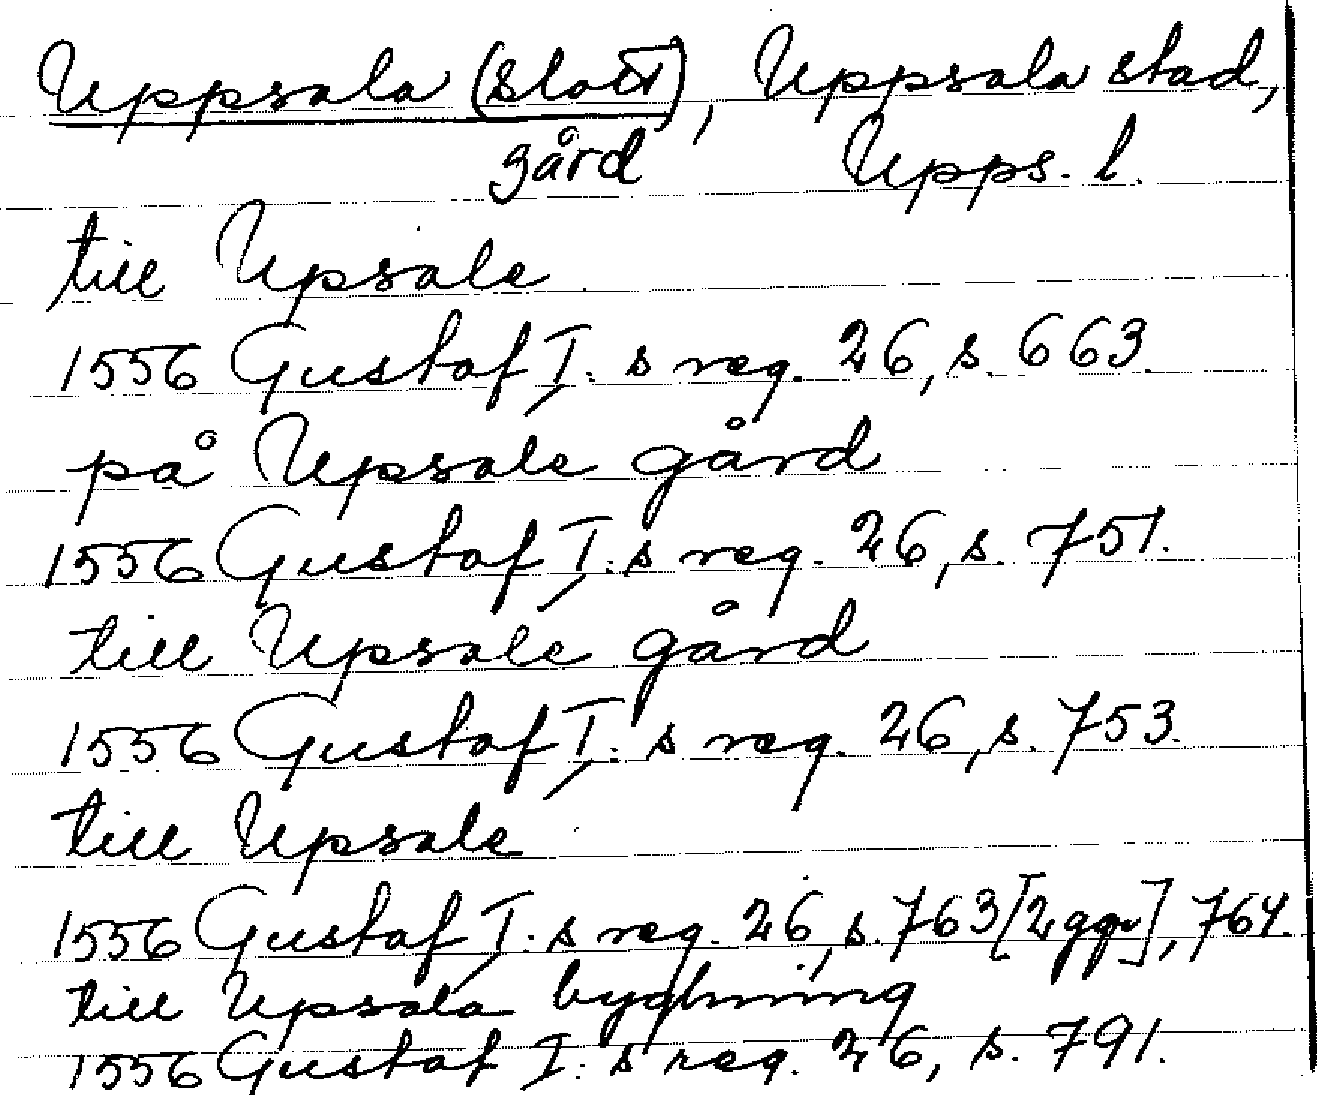 Uppsala (slott), Uppsala stad,
gård Upps. l.
till Upsale
1556 Gustaf I:s reg. 26, s. 663.
på Upsale gård
1556 Gustaf I:s reg. 26, s. 751.
till Upsale gård
1556 Gustaf I:s reg. 26, s. 753.
till Upsale
1556 Gustaf I:s reg. 26, s. 763 [2 ggr], 764.
till Upsala byghning
1556 Gustaf I:s reg. 26, s. 791.